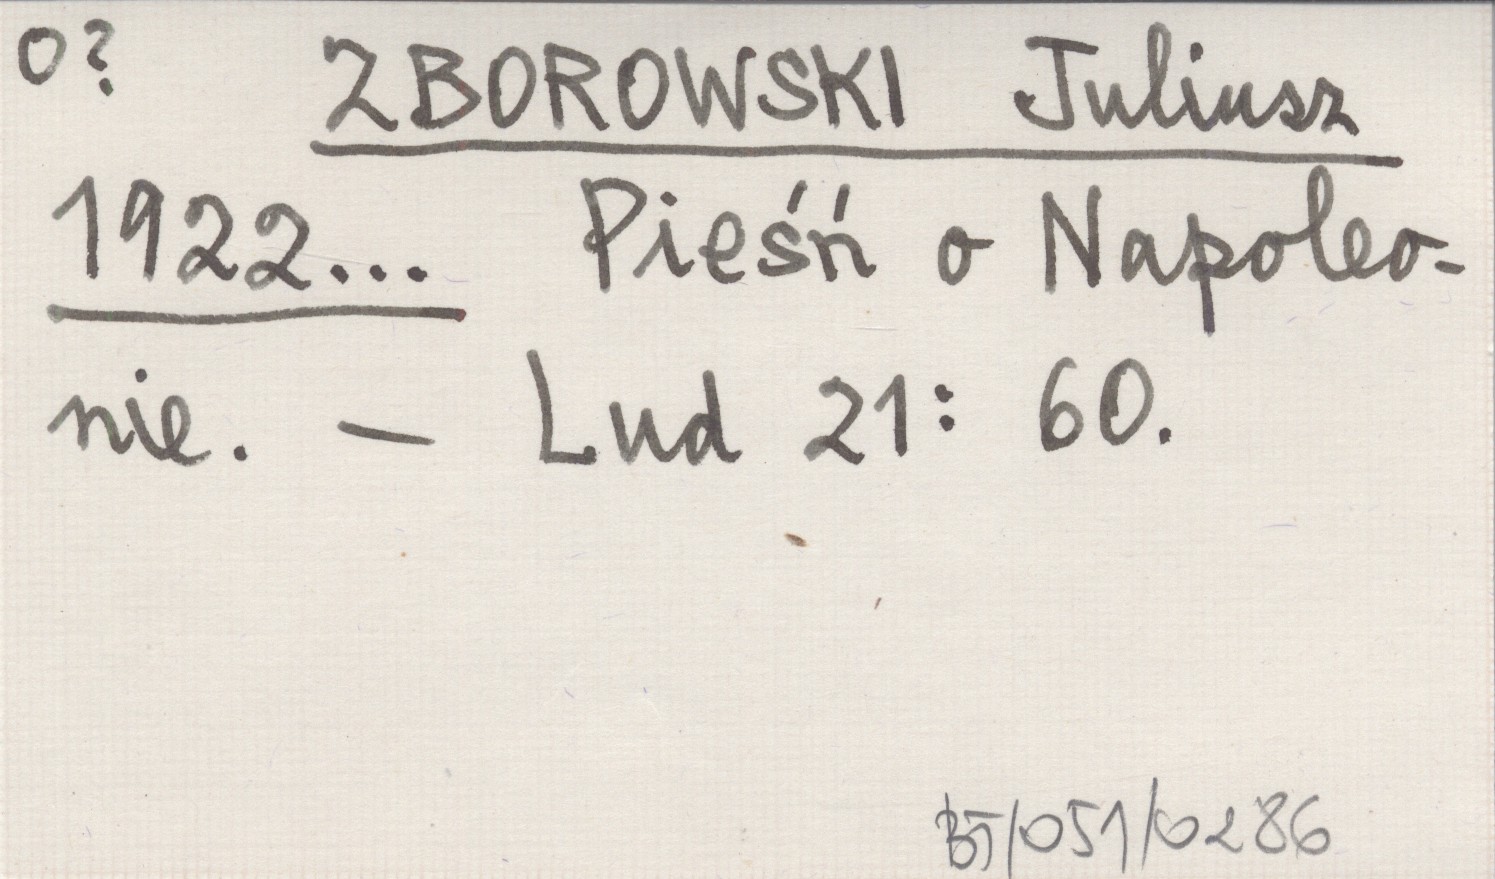 o? ZBOROWSKI Juliusz
1922... Pieśń o Napoleo-
nie. — Lud 21: 60.
BT/051/0286